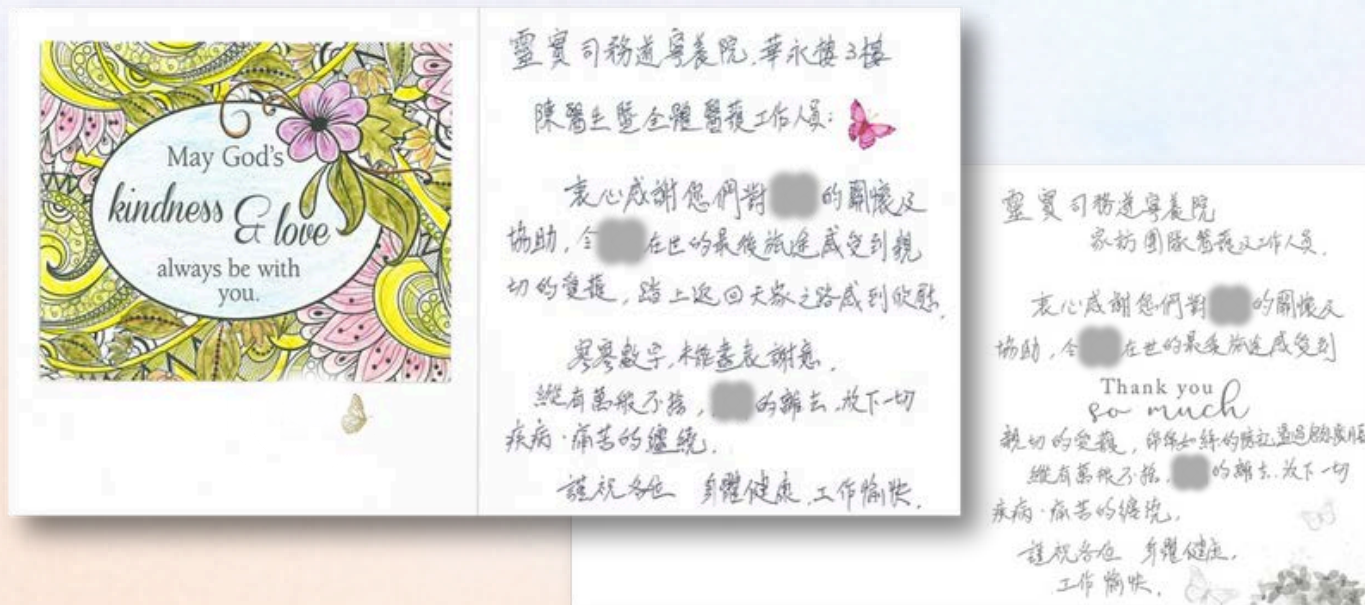 May God's
kindness & love
always be with
you.
靈實司務道寧養院.華永樓3樓
陳醫生暨全體醫護工作人員:
衷心感謝您們對 的關懷及
協助,令 在世的最後旅途感受到親
切的愛護,踏上返回天家之路感到欣慰.
寥寥數字,未能盡表謝意.
縱有萬般不捨, 的離去.放下一切
疾病·痛苦的纏繞.
謹祝各位 身體健康.工作愉快.
靈實司務道寧養院
家訪團隊醫護及工作人員.
衷心感謝您們對 的關懷及
協助,令 在世的最後旅途感受到
Thank you
so much
親切的愛護,
縱有萬般不捨. 的離去.放下一切
疾病·痛苦的纏繞.
謹祝各位 身體健康.
工作愉快.